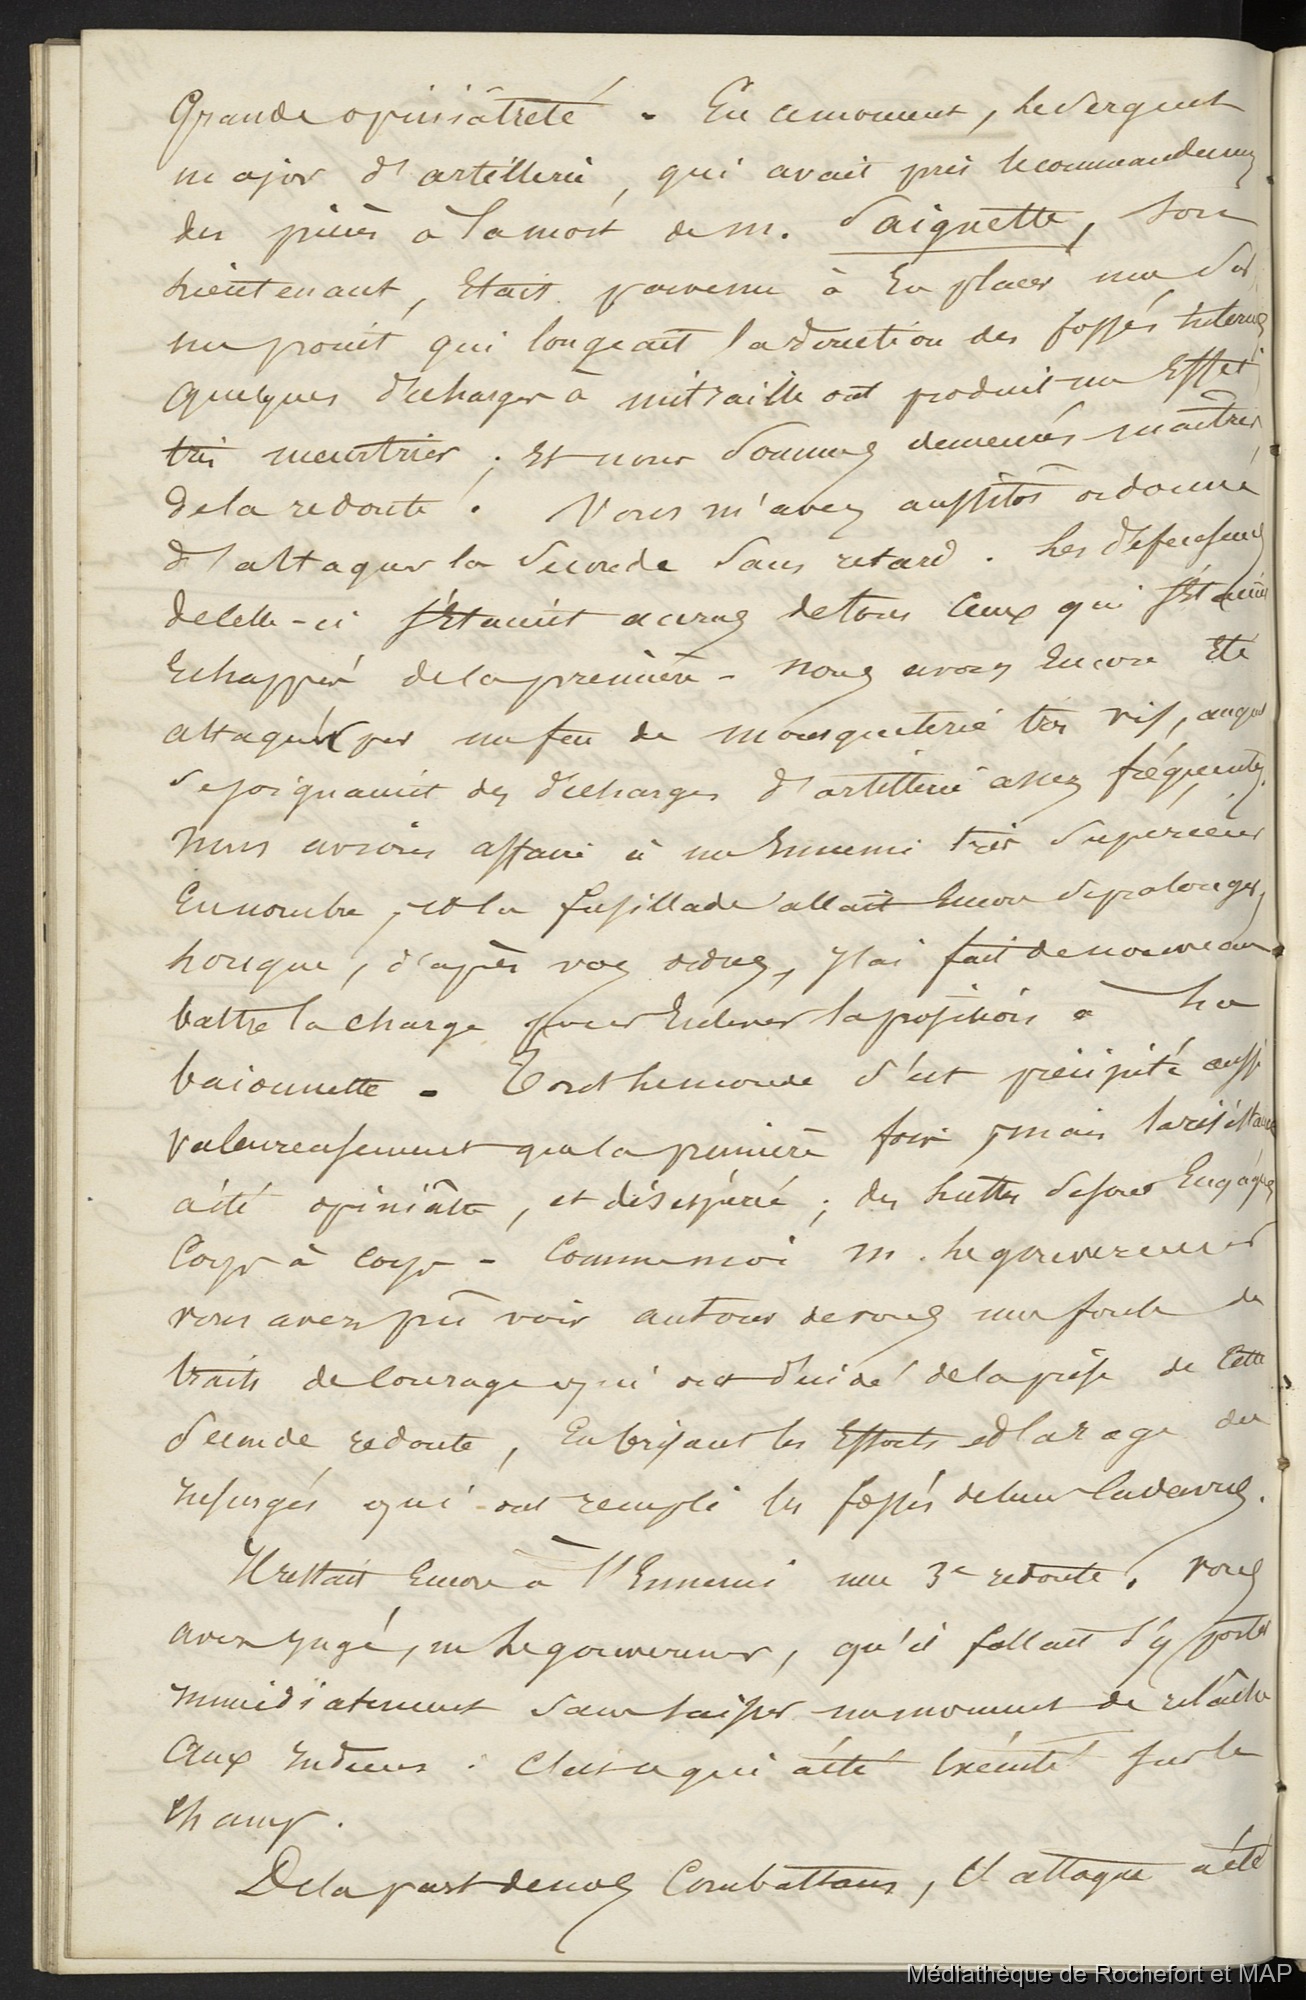 Grande opiniâtreté. En ce moment, le sergent
major d'artillerie, qui avait pris le commandement
des pièces à la mort de m. Saignette, son
lieutenant, était parvenu à en placer une sur
un point qui longeait la direction des fossés internes
quelques décharges à mitraille ont produit un effet
très meurtrier ; et nous sommes demeurés maîtres
de la redoute. Vous m'avez aussitôt ordonné
d'attaquer la seconde sans retard. Les défenseurs
de celle-ci s'étaient accrus de tous ceux qui s'étaient
échappés de la première - nous avons encore été
attaqués par un feu de mousqueterie très vif, auquel
se joignaient des décharges d'artillerie assez fréquentes.
nous avions affaire à un ennemi très supérieur
en nombre, et la fusillade allait encore se prolonger,
lorsque, d'après vos ordres, j'ai fait de nouveau
battre la charge pour enlever la position à la
baïonnette - Tout le monde s'est précipité aussi
valeureusement que la première fois ; mais la résistance
a été opiniâtre, et désespérée ; des luttes se sont engagées
corps à corps - Comme moi m. le gouverneur
vous avez pû voir autour de vous une foule de
traits de courage qui ont décidé de la prise de cette
seconde redoute, en brisant les efforts et la rage des
insurgés qui ont rempli les fossés de leurs cadavres.
Il restait encore à l'ennemi une 3e redoute. vous
avez jugé, m le gouverneur, qu'il fallait s'y porter
immédiatement sans laisser un moment de relâche
aux indiens : c'est ce qui a été exécuté sur le
champ.
De la part de nos Combattans, l'attaque a été
Médiathèque de Rochefort et MAP